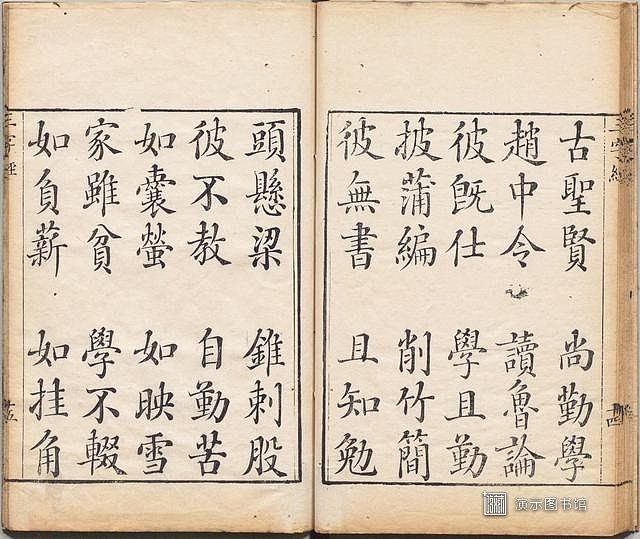 三字經
古聖賢 尚勤學
趙中令 讀魯論
彼既仕 學且勤
披蒲編 削竹簡
彼無書 且知勉
頭懸梁 錐刺股
彼不教 自勤苦
如囊螢 如映雪
家雖貧 學不輟
如負薪 如挂角
三字經
演示图书馆